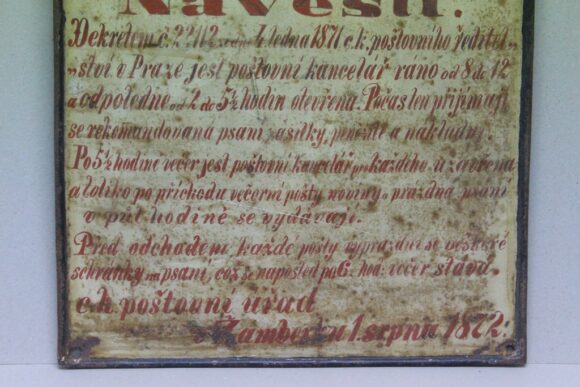 Návěstí.
Dekretem č. 22112 ze dne 4 ledna 1871 c.k. poštovního ředitel„
„ství v Praze jest poštovní kancelář ráno od 8 do 12
a odpoledne od 2 do 5½ hodin otevřena. Počas ten přijímají
se rekomandovaná psaní zásilky, peněžité a nákladní.
Po 5½ hodině večer jest poštovní kancelář pro každého uzavřena
a toliko po příchodu večerní pošty noviny a prázdná psaní
v půl hodině se vydávají.
Před odchodem každé pošty vyprázdní se veškeré
schránky na psaní, což se naposled po 6. hod: večer stává.
c.k. poštovní úřad
v Žamberku 1 srpna 1872.